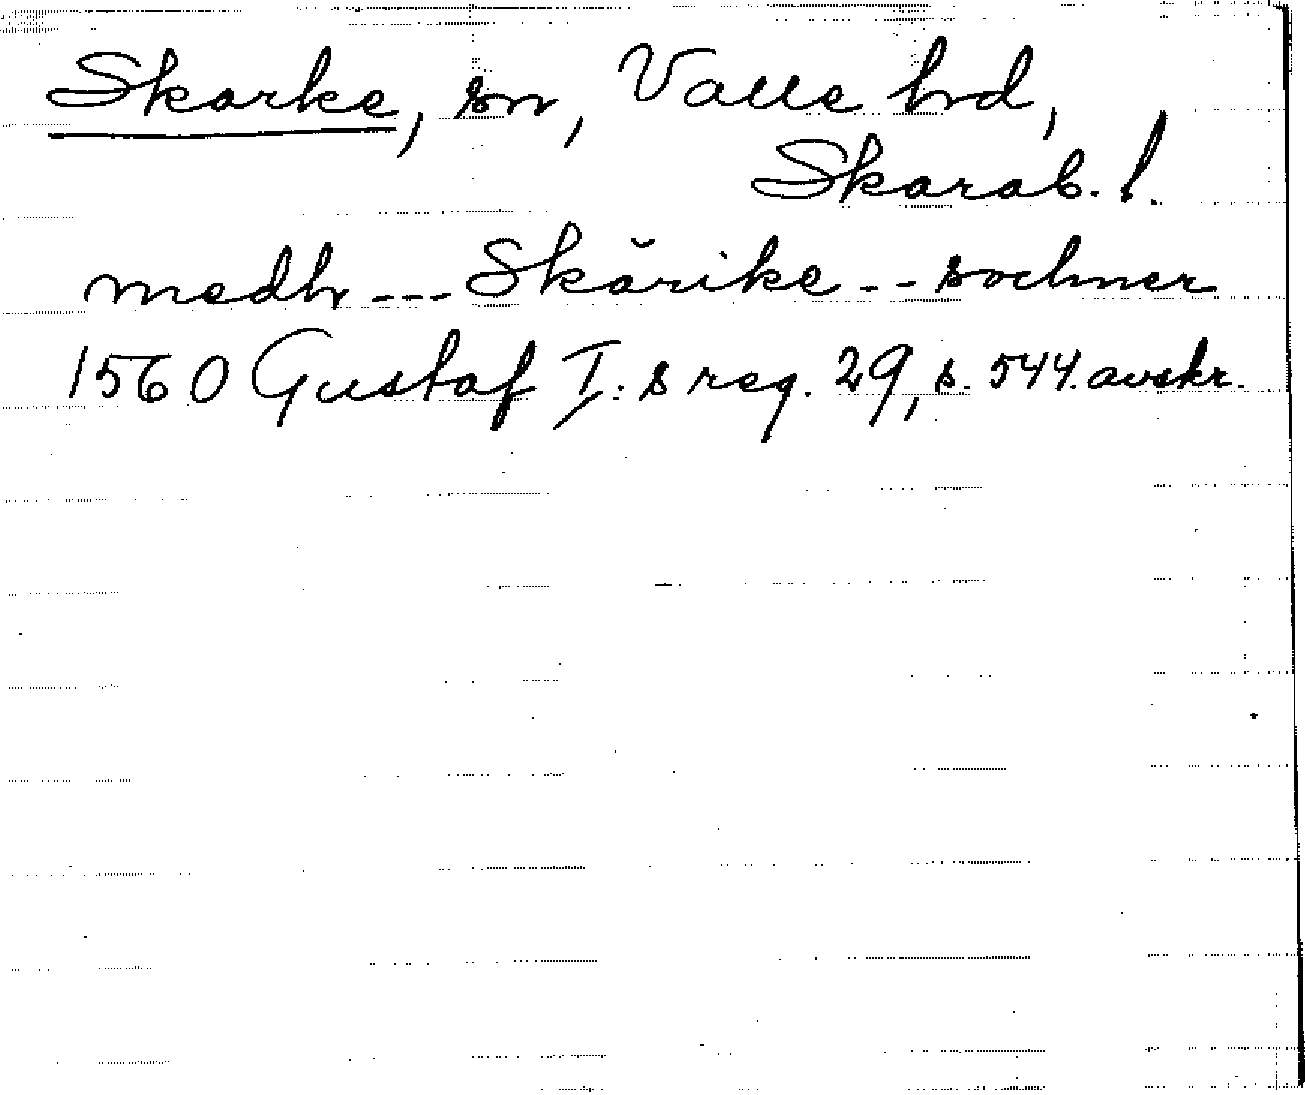 Skarke, sn, Valle hd,
Skarab. l.
medh --- Skărike -- sochner
1560 Gustaf I:s reg. 29, s. 544. avskr.